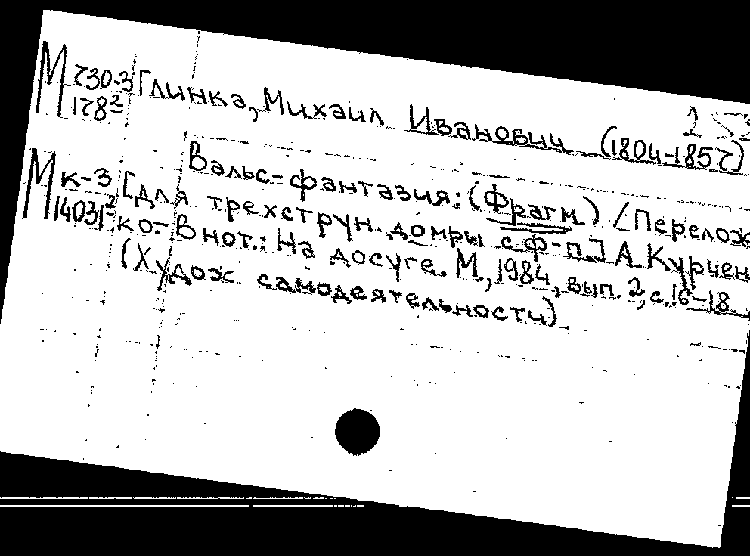 М 730-3 Глинка, Михаил Иванович (1804-1857)
178²
М к-3 Вальс-фантазия: (Фрагм.) / Перелож
1403 [для трехструн. домры с ф-п.] А. Курчен
ко.- В нот.: На досуге. М., 1984, вып. 2, с. 16-18
(Худож. самодеятельности)